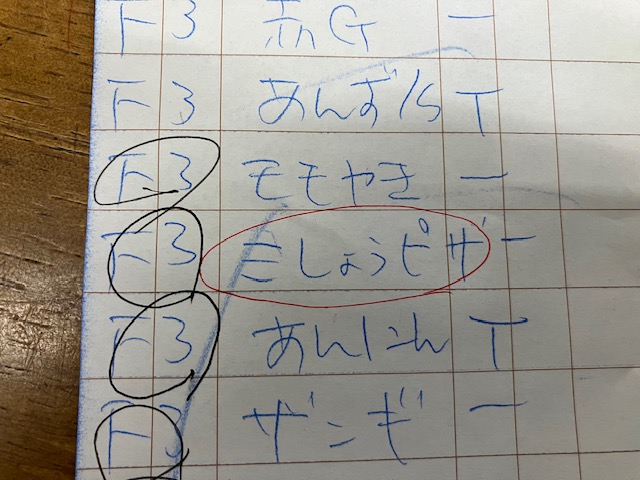 F3 赤G 一
F3 あんず/S T
F3 モモやき 一
F3 三しょうピザ 一
F3 あんにん T
F3 ザンギ 一